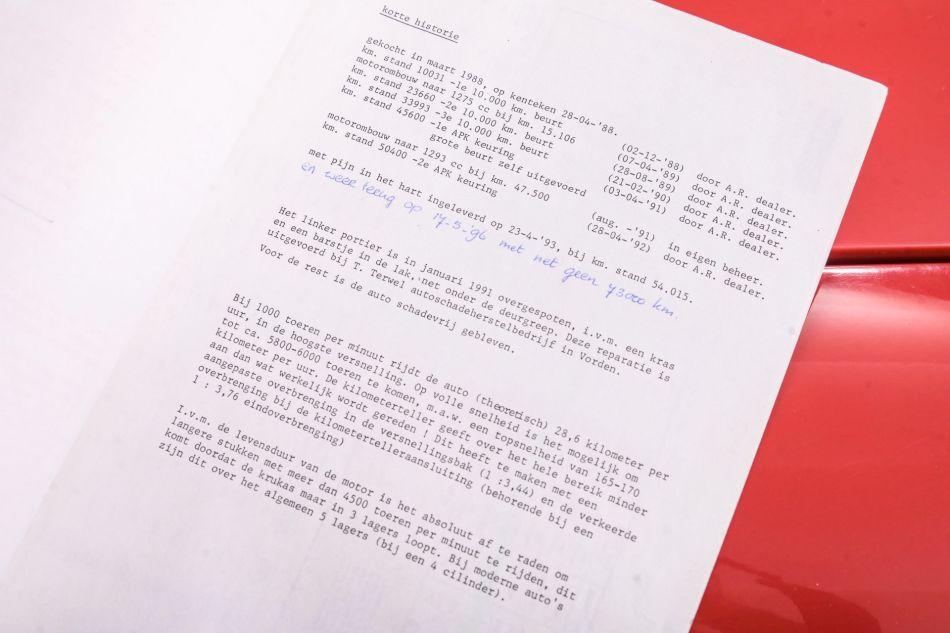 korte historie
gekocht in maart 1988, op kenteken 28-04-'88.
km. stand 10031 -1e 10.000 km. beurt (02-12-'88) door A.R. dealer.
motorombouw naar 1275 cc bij km. 15.106 (07-04-'89) door A.R. dealer.
km. stand 23660 -2e 10.000 km. beurt (28-08-'89) door A.R. dealer.
km. stand 33993 -3e 10.000 km. beurt (21-02-'90) door A.R. dealer.
km. stand 45600 -1e APK keuring (03-04-'91) door A.R. dealer.
grote beurt zelf uitgevoerd
motorombouw naar 1293 cc bij km. 47.500 (aug. -'91) in eigen beheer.
km. stand 50400 -2e APK keuring (28-04-'92) door A.R. dealer.
met pijn in het hart ingeleverd op 23-4-'93, bij km. stand 54.015.
en weer terug op 17-5-96 met net geen 73000 km.
Het linker portier is in januari 1991 overgespoten, i.v.m. een kras
en een barstje in de lak, net onder de deurgreep. Deze reparatie is
uitgevoerd bij T. Terwel autoschadeherstelbedrijf in Vorden.
Voor de rest is de auto schadevrij gebleven.
Bij 1000 toeren per minuut rijdt de auto (theoretisch) 28,6 kilometer per
uur, in de hoogste versnelling. Op volle snelheid is het mogelijk om
tot ca. 5800-6000 toeren te komen, m.a.w. een topsnelheid van 165-170
kilometer per uur. De kilometerteller geeft over het hele bereik minder
aan dan wat werkelijk wordt gereden ! Dit heeft te maken met een
aangepaste overbrenging in de versnellingsbak (1 :3.44) en de verkeerde
overbrenging bij de kilometertelleraansluiting (behorende bij een
1 : 3,76 eindoverbrenging)
I.v.m. de levensduur van de motor is het absoluut af te raden om
langere stukken met meer dan 4500 toeren per minuut te rijden, dit
komt doordat de krukas maar in 3 lagers loopt. Bij moderne auto's
zijn dit over het algemeen 5 lagers (bij een 4 cilinder).